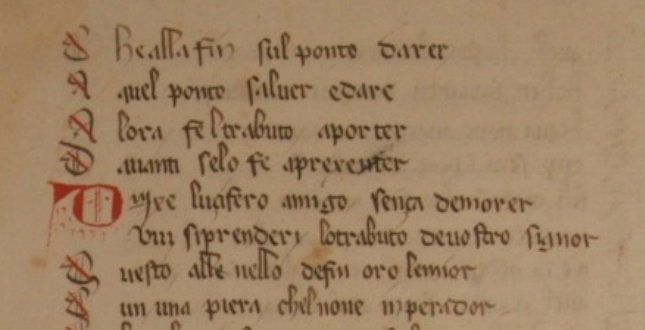 C he alla fin sul ponte darer
A quel ponto saluer edare
A lora fe ltrabuto aporter
D auanti selo fe aprexenter
D ixe luçifero amigo sença demorer
Vuii siprenderi lotrabuto deuostro signor
Q uesto alle nello defin oro lemior
E un una piera chel none inperador